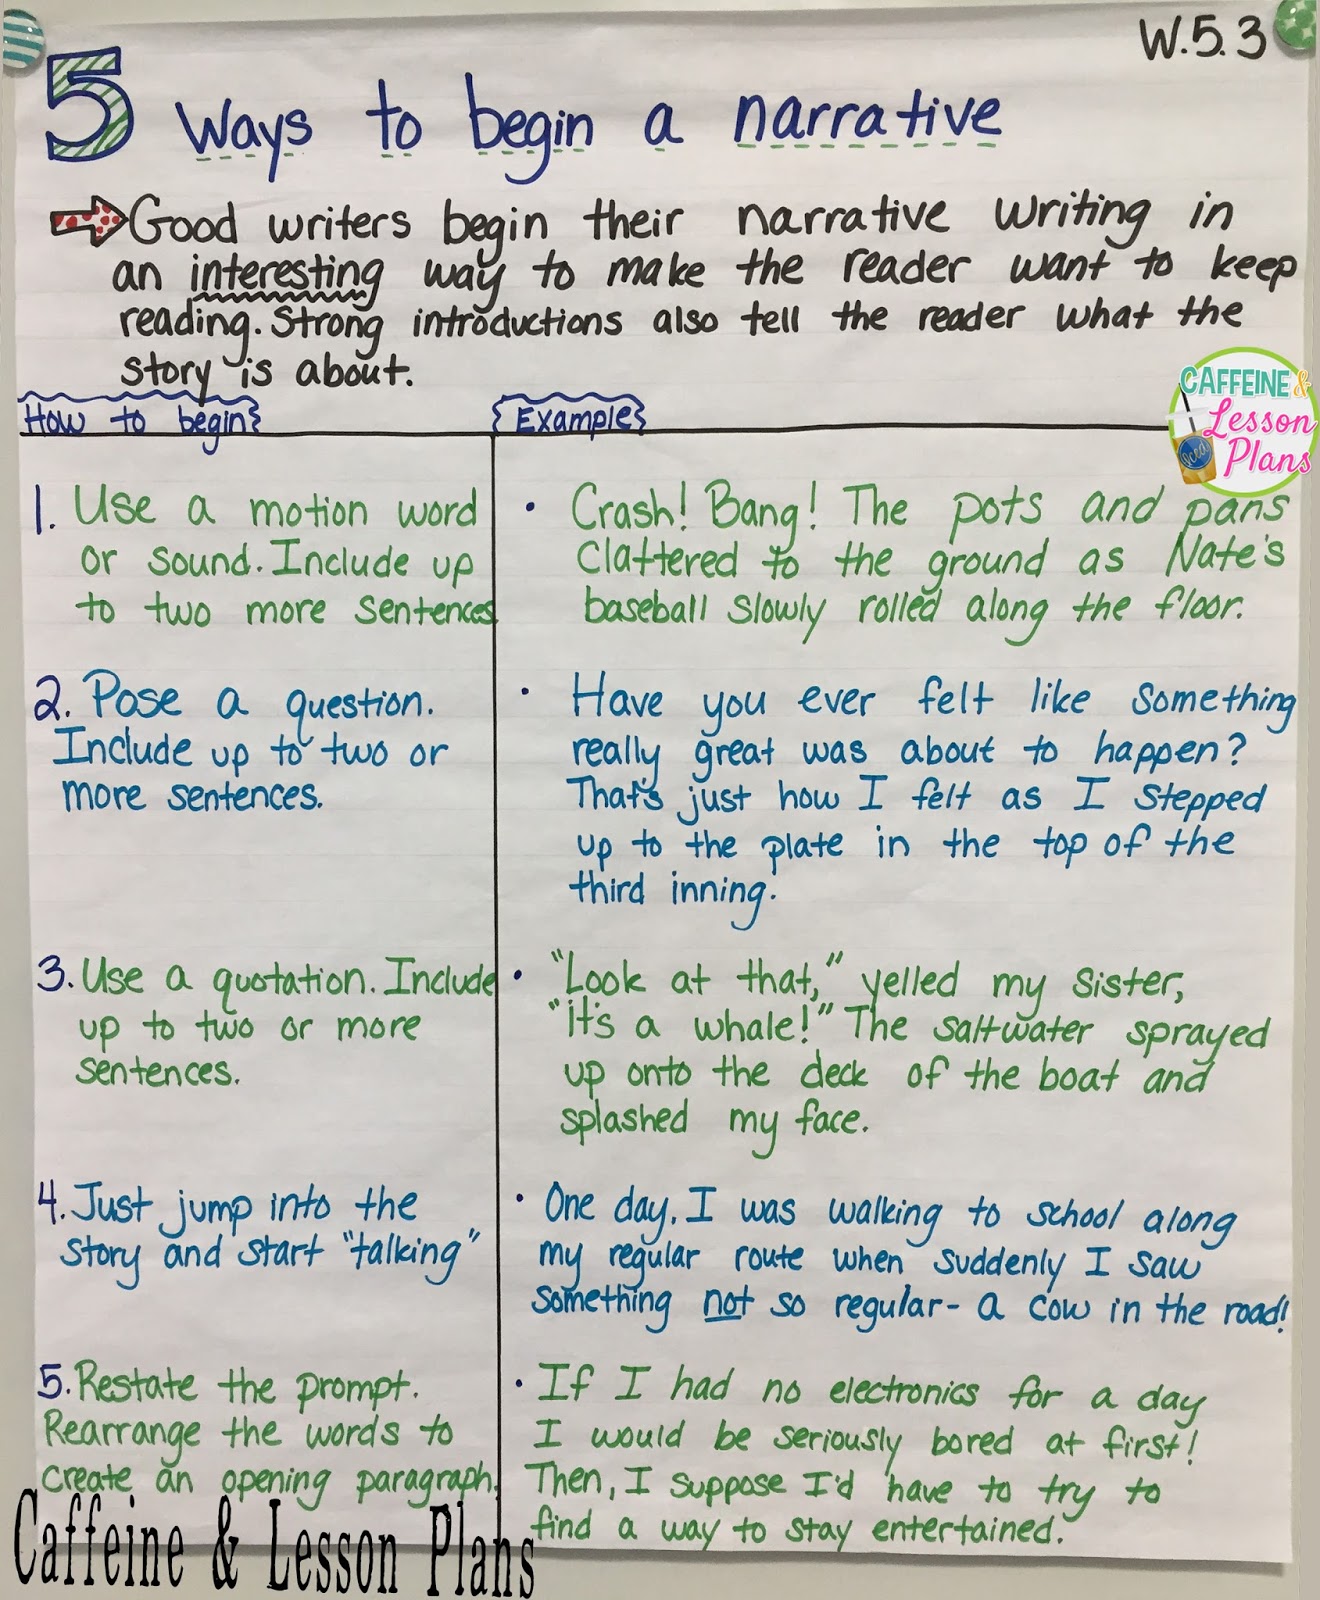 W.5.3
5 ways to begin a narrative
Good writers begin their narrative writing in
an interesting way to make the reader want to keep
reading. Strong introductions also tell the reader what the
story is about.
CAFFEINE &
Lesson
Plans
Iced
How to begin
Example
1. Use a motion word
or sound. Include up
to two more sentences
• Crash! Bang! The pots and pans
clattered to the ground as Nate's
baseball slowly rolled along the floor.
2. Pose a question.
Include up to two or
more sentences.
• Have you ever felt like something
really great was about to happen?
That's just how I felt as I stepped
up to the plate in the top of the
third inning.
3. Use a quotation. Include
up to two or more
sentences.
• "Look at that," yelled my sister,
"it's a whale!" The saltwater sprayed
up onto the deck of the boat and
splashed my face.
4. Just jump into the
story and start "talking"
• One day, I was walking to school along
my regular route when suddenly I saw
something not so regular- a cow in the road!
5. Restate the prompt.
Rearrange the words to
create an opening paragraph.
• If I had no electronics for a day
I would be seriously bored at first!
Then, I suppose I'd have to try to
find a way to stay entertained.
Caffeine & Lesson Plans